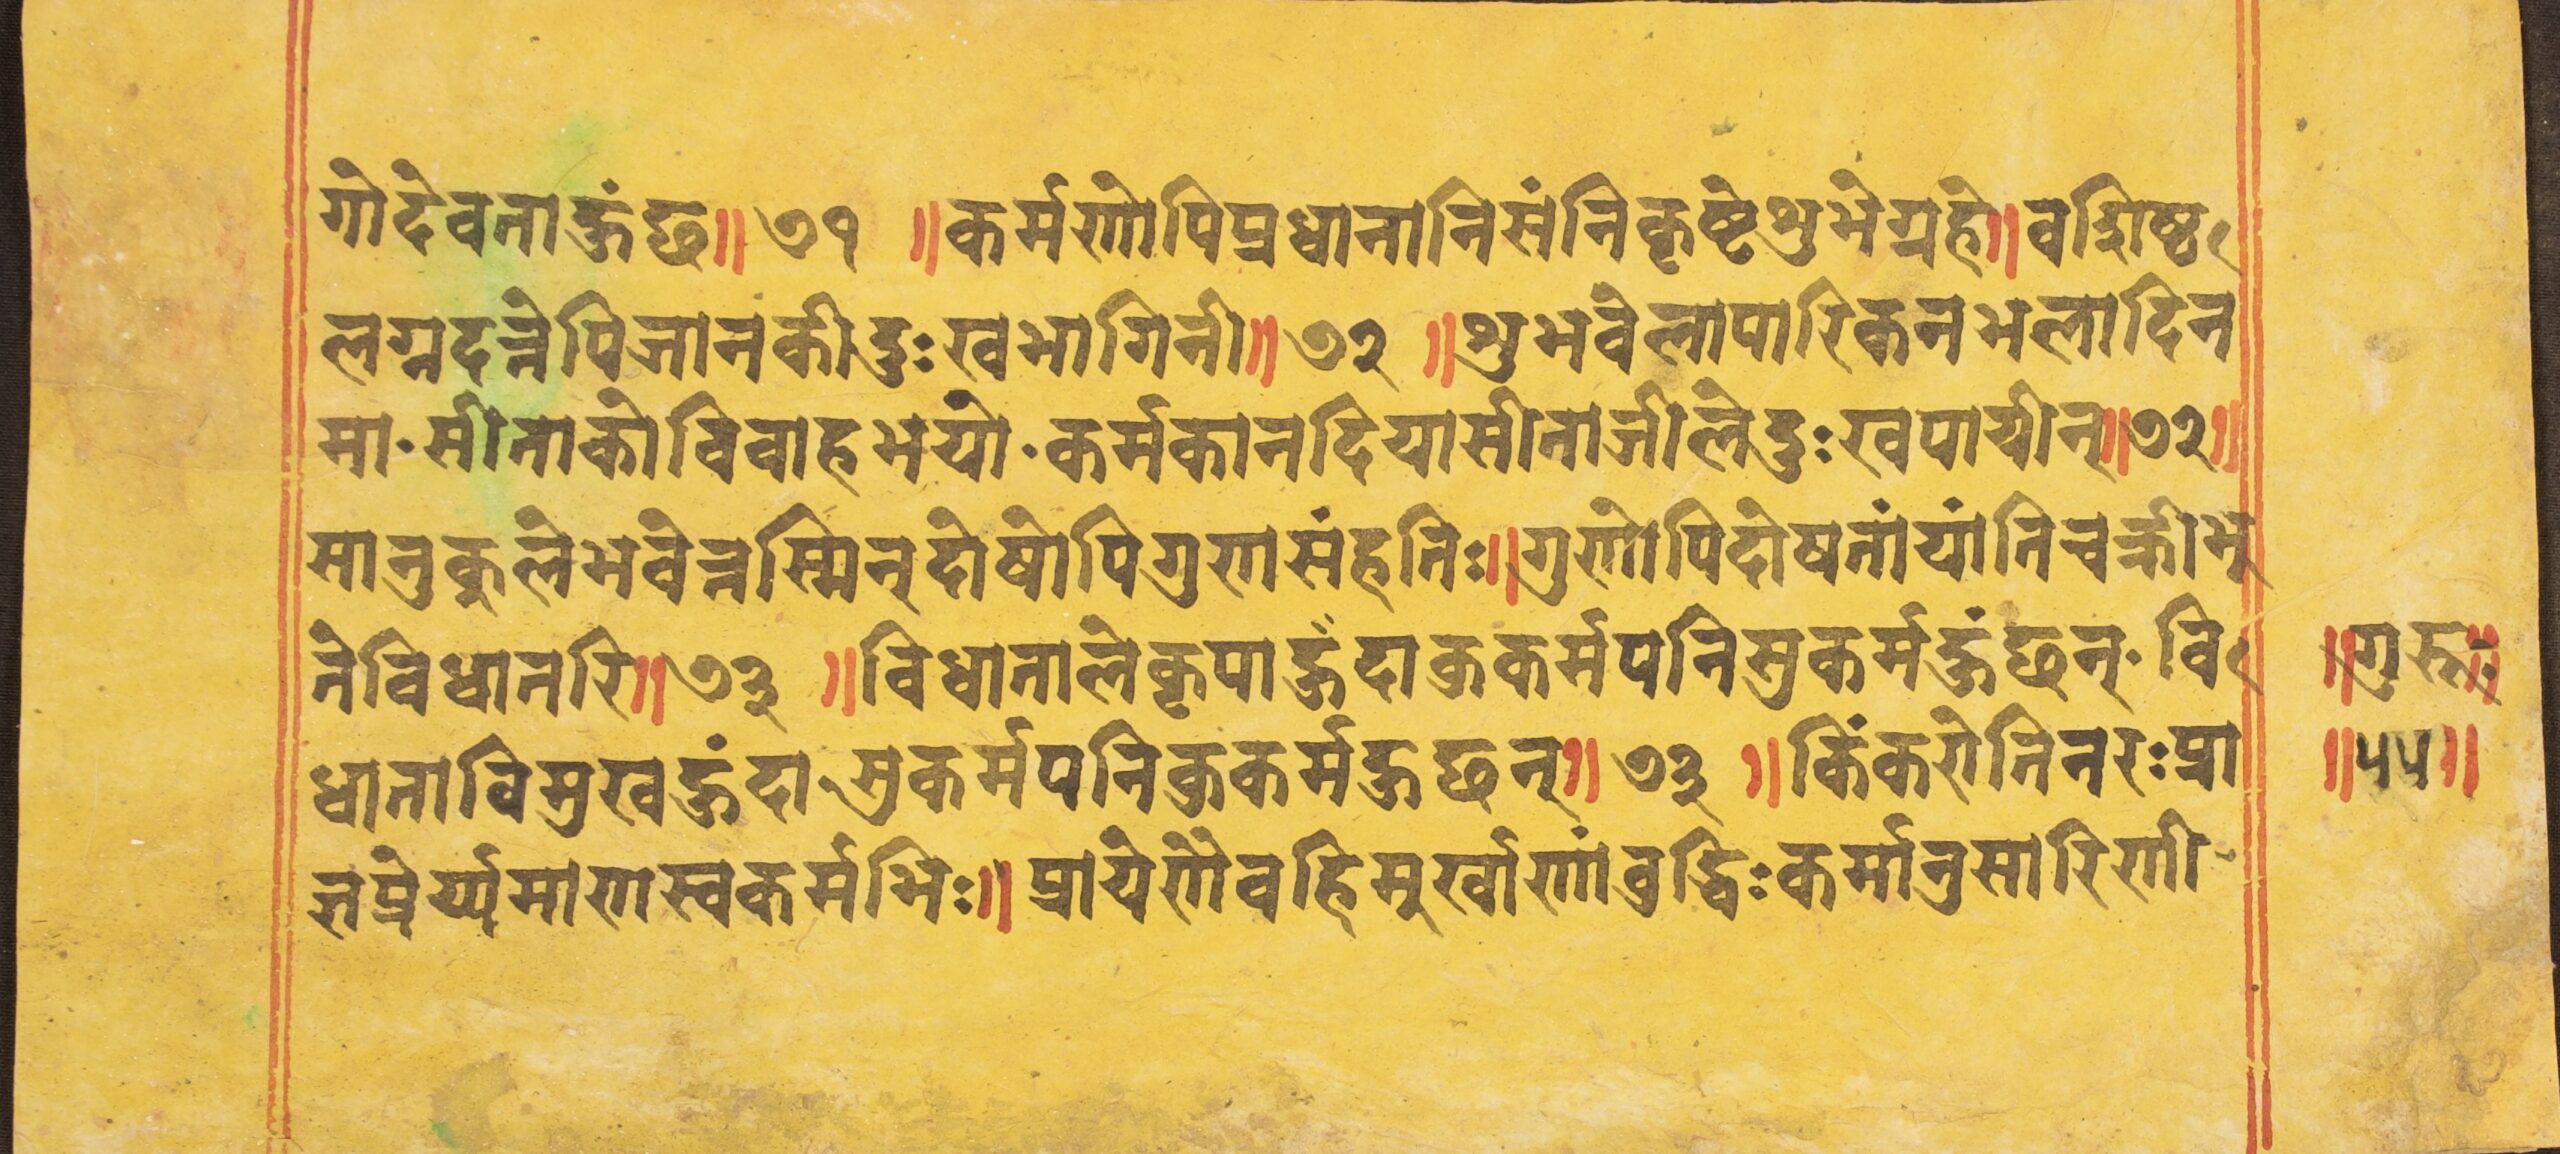 गोदेवताहुंछ॥ ७१ ॥कर्मणोपिप्रधानानिसंनिकृष्टेशुभेग्रहे॥वशिष्ठ
लग्नदत्तेपिजानकीदुःखभागिनी॥ ७२ ॥शुभवेलापारिकनभलादिन
मा·सीताकोविवाहभयो·कर्मकानदियासीताजीलेदुःखपायीन्॥७२॥
सानुकुलेभवेत्तस्मिन्दोषोपिगुणसंहतिः॥गुणोपिदोषतांयांतिचक्रीभू
तेविधातरि॥७३ ॥विधातालेकृपाहुँदाकुकर्मपनिसुकर्महुंछन्·वि
धाताविमुखहुंदा·सुकर्मपनिकुकर्महुछन्॥ ७३ ॥किंकरोतिनरःप्रा
ज्ञप्रेर्य्यमाणस्वकर्मभिः॥ प्रायेणैवहिमूर्खाणांबुद्धिःकर्मानुसारिणी
॥गुरुः॥
॥५५॥